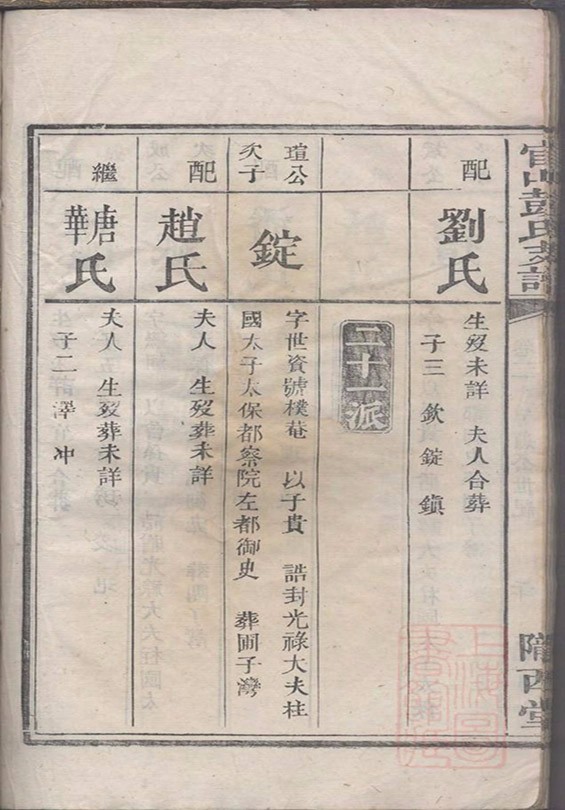 彭氏支譜
隴西堂
配
劉氏
生歿未詳 夫人合葬
子三 欽 錠 鎮
二十一派
瑄公
次子
錠
字世資號樸菴 以子貴 誥封光祿大夫柱
國太子太保都察院左都御史 葬圃子灣
配
趙氏
夫人 生歿葬未詳
繼
唐
華
氏
夫人 生歿葬未詳
子二 澤 冲
上海圖
書館藏